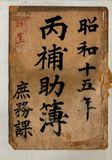 昭和十五年
丙補助簿
庶務課